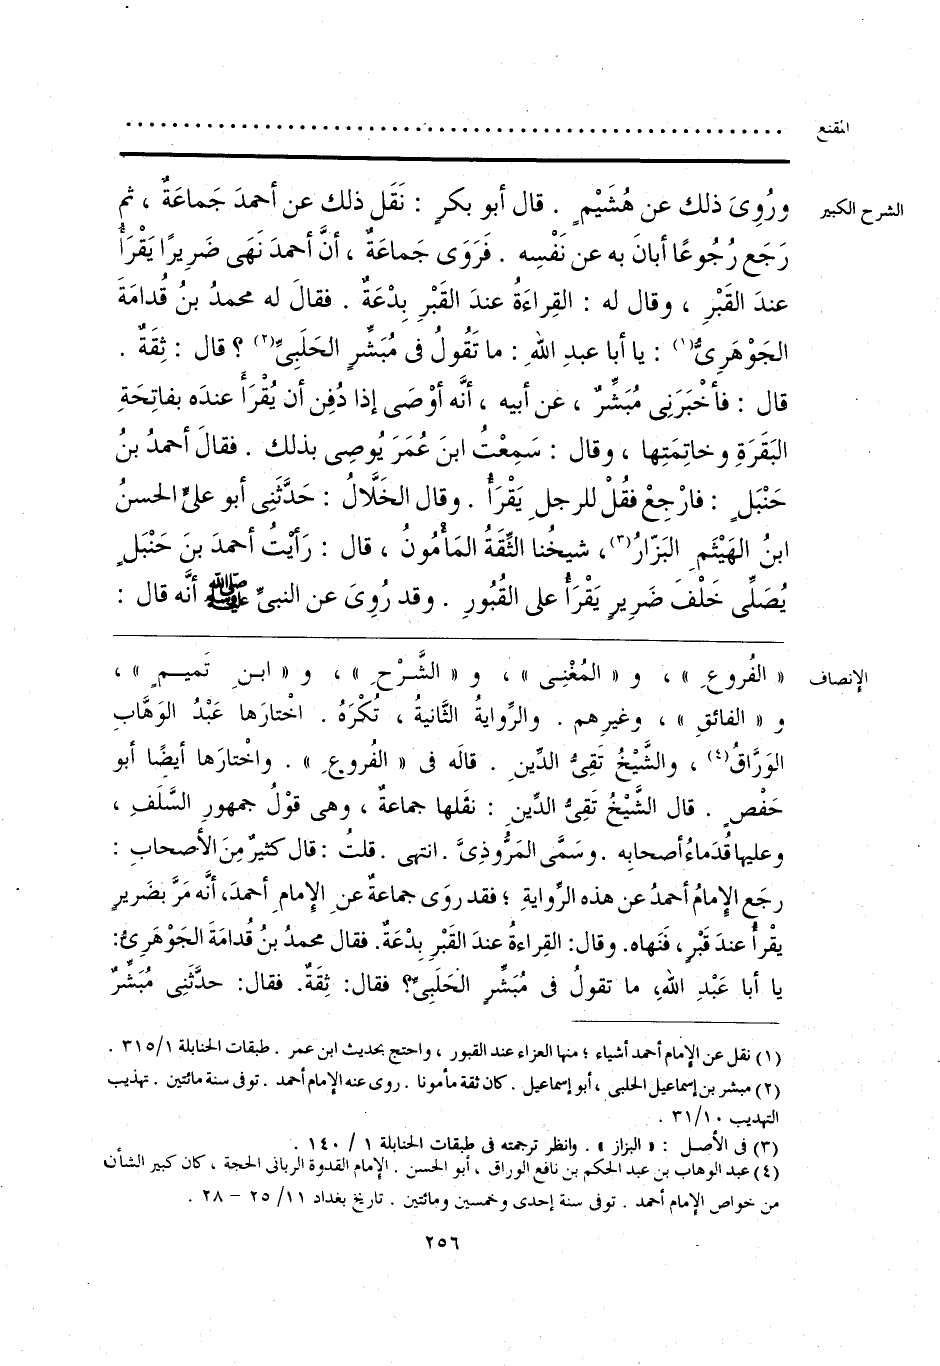 المقنع ................................................................
الشرح الكبير ورُوِىَ ذلك عن هُشَيْمٍ . قال أبو بكرٍ : نَقَل ذلك عن أحمدَ جَماعَةٌ ، ثم
رَجَع رُجُوعًا أبانَ به عن نَفْسِه . فَرَوَى جَماعَةٌ ، أنَّ أحمدَ نَهَى ضَرِيرًا يَقْرَأُ
عندَ القَبْرِ ، وقال له : القِراءَةُ عندَ القَبْرِ بِدْعَةٌ . فقالَ له محمدُ بنُ قُدامَةَ
الجَوْهَرِىُّ(١) : يا أبا عبدِ اللهِ : ما تَقُولُ فى مُبَشِّرٍ الحَلَبِىِّ(٢) ؟ قال : ثِقَةٌ .
قال : فأخْبَرَنِى مُبَشِّرٌ ، عن أبيه ، أنَّه أوْصَى إذا دُفِن أن يُقْرَأَ عندَه بفاتِحَةِ
البَقَرَةِ وخاتِمَتِها ، وقال : سَمِعْتُ ابنَ عُمَرَ يُوصِى بذلك . فقالَ أحمدُ بنُ
حَنْبَلٍ : فارْجِعْ فقُلْ للرجلِ يَقْرَأُ . وقال الخَلَّالُ : حَدَّثَنِى أبو علىٍّ الحسنُ
ابنُ الهَيْثَمِ البَزَّارُ(٣)، شيخُنا الثِّقَةُ المَأْمُونُ ، قال : رَأيْتُ أحمدَ بنَ حَنْبَلٍ
يُصَلِّى خَلْفَ ضَرِيرٍ يَقْرَأُ على القُبُورِ . وقد رُوِىَ عن النبىِّ ﷺ أنَّه قال :
الإنصاف « الفُروعِ » ، و « المُغْنِى » ، و « الشَّرْحِ » ، و « ابنِ تَميمٍ » ،
و « الفائقِ » ، وغيرِهم . والرِّوايةُ الثَّانيةُ ، تُكْرَهُ . اختارَها عَبْدُ الوَهَّابِ
الوَرَّاقُ(٤) ، والشَّيْخُ تَقِىُّ الدِّينِ . قالَه فى « الفُروعِ » . واخْتارَها أيضًا أبو
حَفْصٍ . قال الشَّيْخُ تَقِىُّ الدِّينِ : نقَلها جماعةٌ ، وهى قوْلُ جمهورِ السَّلَفِ ،
وعليها قُدَماءُ أصحابِه . وسَمَّى المَرُّوذِىَّ . انتهى . قلتُ : قال كثيرٌ مِنَ الأصحابِ :
رجَع الإِمامُ أحمدُ عن هذه الرِّوايةِ ؛ فقد روَى جماعةٌ عنِ الإِمامِ أحمدَ، أنَّه مَرَّ بضَريرٍ
يقْرأُ عندَ قَبْرٍ ، فَنَهاه. وقال: القِراءةُ عندَ القَبْرِ بِدْعَةٌ. فقال محمدُ بنُ قُدامَةَ الجَوْهَرِىُّ:
يا أبا عَبْدِ اللهِ، ما تقولُ فى مُبَشِّرٍ الحَلَبِىِّ؟ فقال: ثِقَةٌ. فقال: حدَّثَنِى مُبَشِّرٌ
(١) نقل عن الإمام أحمد أشياء ؛ منها العزاء عند القبور ، واحتج بحديث ابن عمر . طبقات الحنابلة ٣١٥/١ .
(٢) مبشر بن إسماعيل الحلبى ، أبو إسماعيل . كان ثقة مأمونا . روى عنه الإمام أحمد . توفى سنة مائتين . تهذيب
التهذيب ٣١/١٠ .
(٣) فى الأصل : « البزاز » . وانظر ترجمته فى طبقات الحنابلة ١ / ١٤٠ .
(٤) عبد الوهاب بن عبد الحكم بن نافع الوراق ، أبو الحسن . الإمام القدوة الربانى الحجة ، كان كبير الشأن
من خواص الإمام أحمد . توفى سنة إحدى وخمسين ومائتين . تاريخ بغداد ١١/ ٢٥ – ٢٨ .
٢٥٦